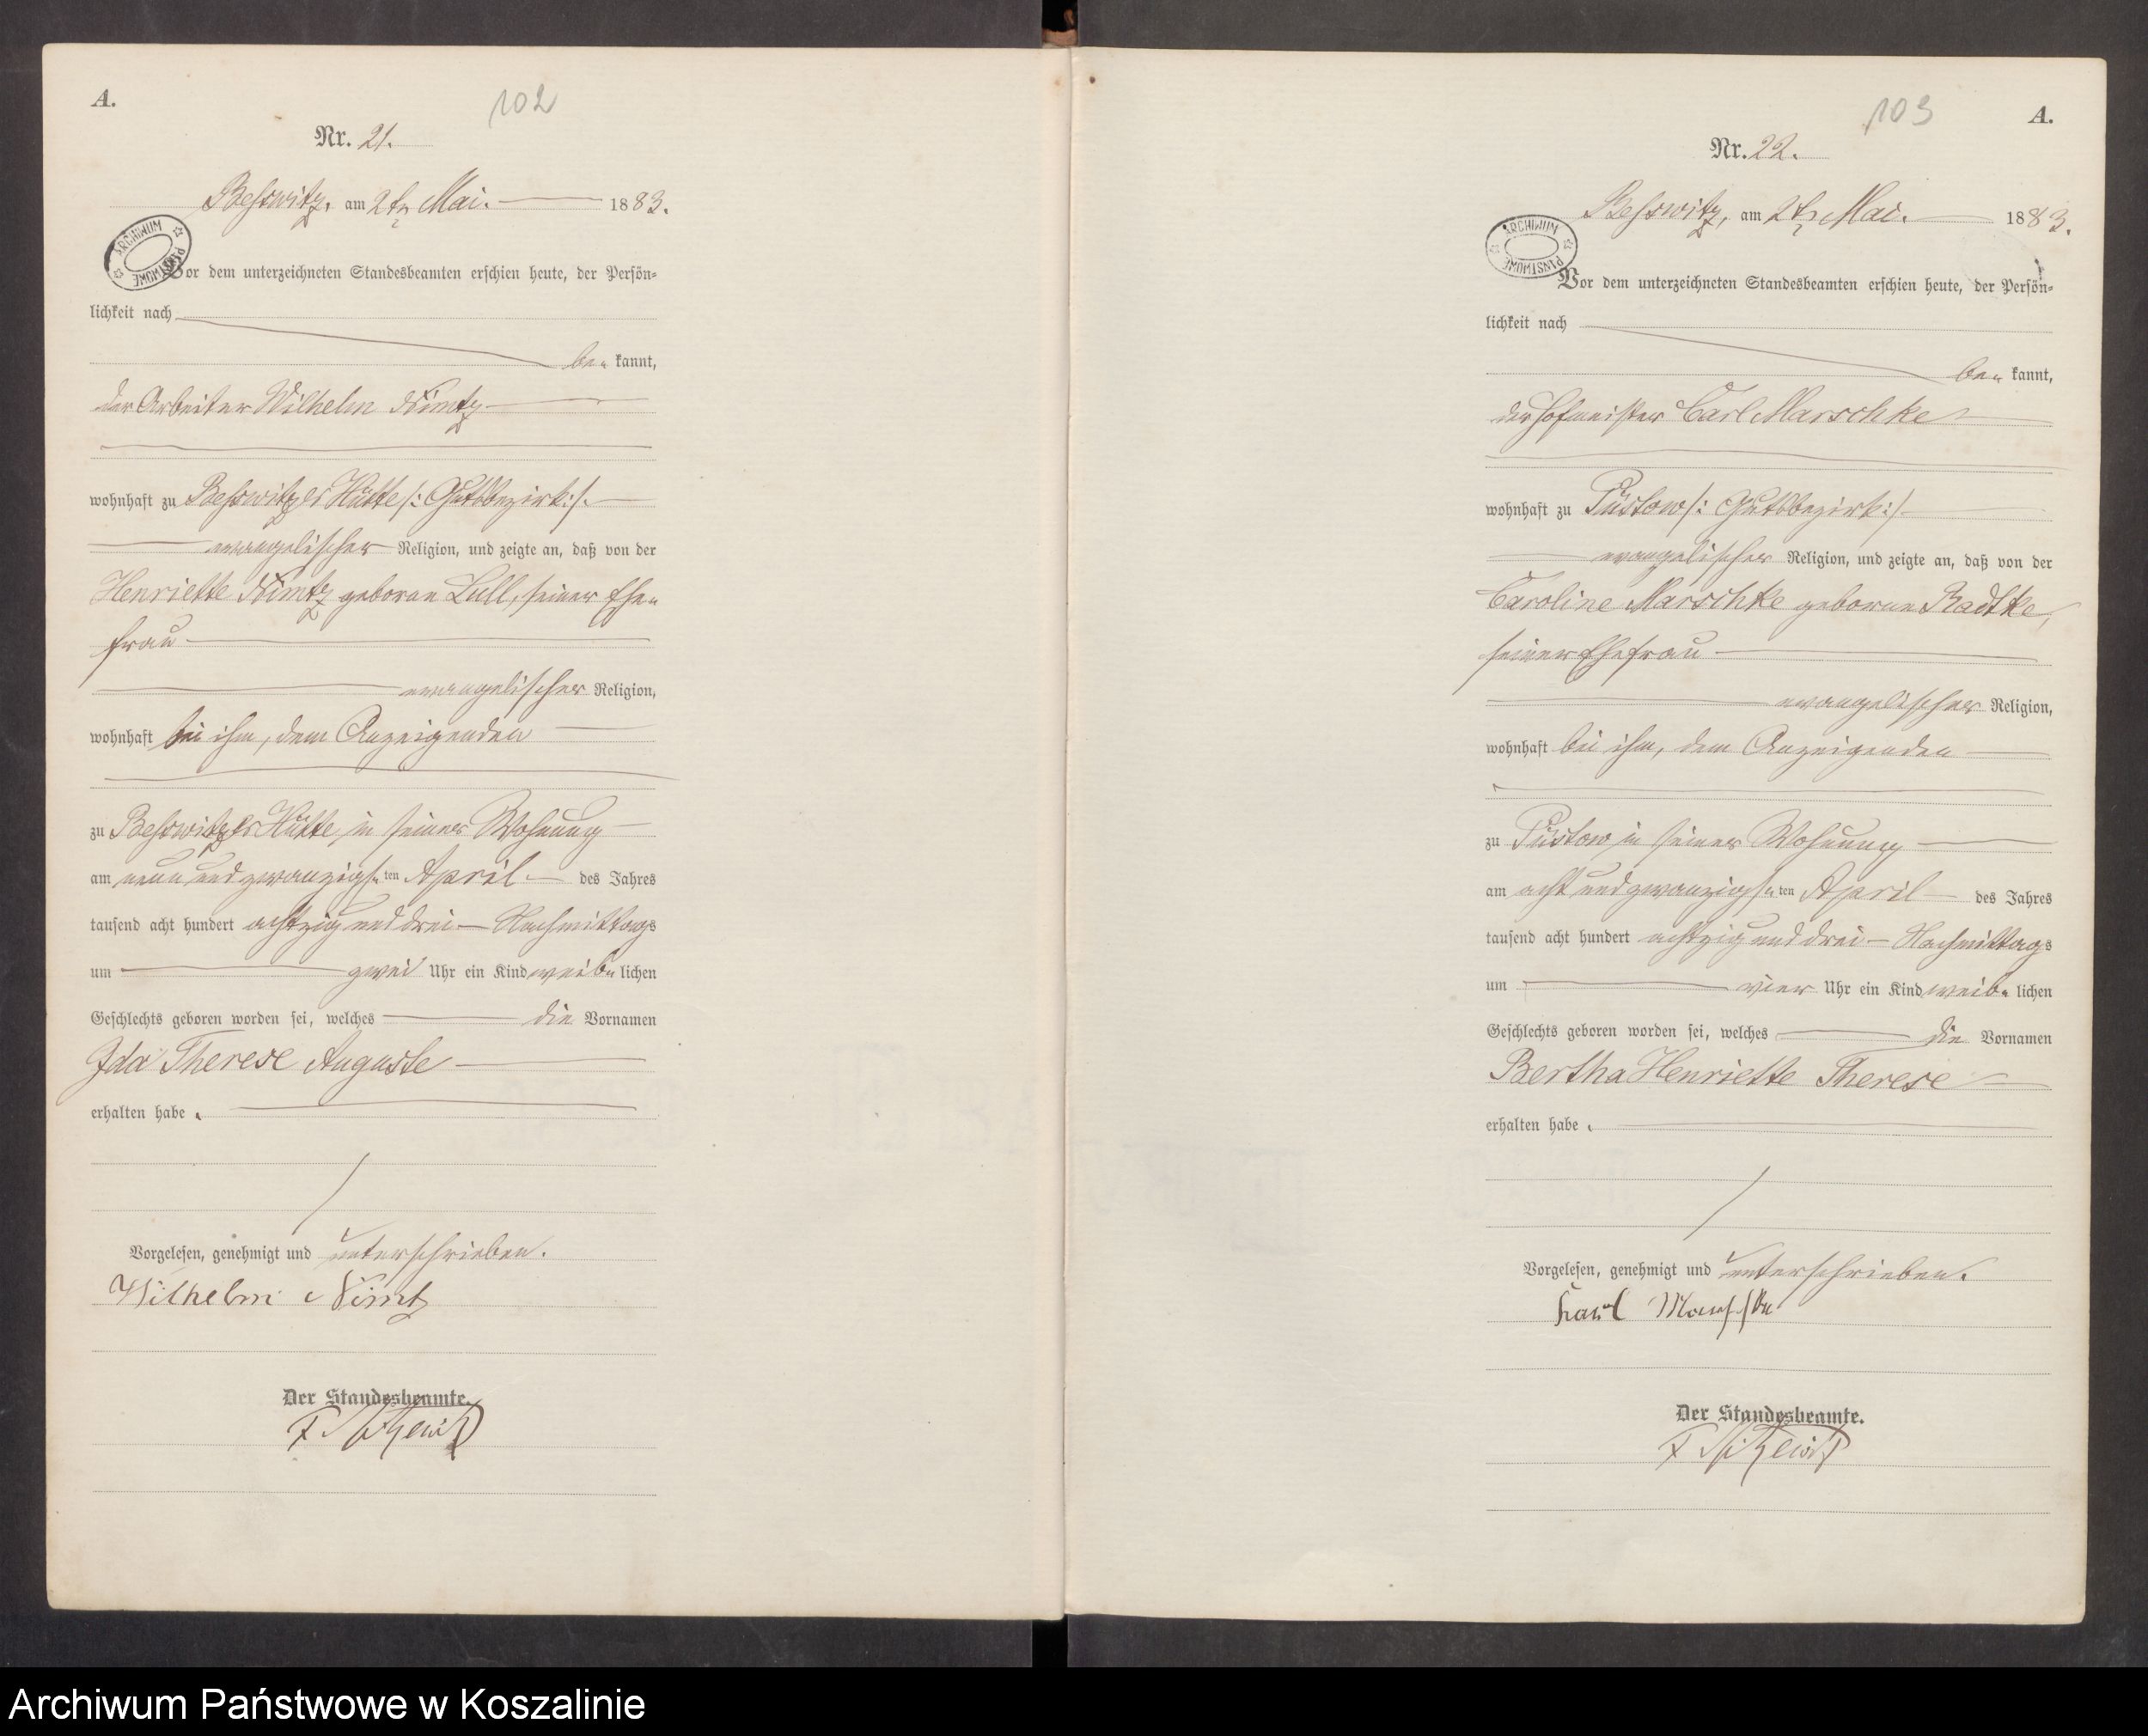 A.
102
Nr. 21.
Beßwitz, am 2ten Mai. 1883.
ARCHIWUM PAŃSTWOWE
Vor dem unterzeichneten Standesbeamten erschien heute, der Persön=
lichkeit nach
be= kannt,
der Arbeiter Wilhelm Nimtz
wohnhaft zu Beßwitzer Hütte /: Gutsbezirk :/.
evangelischer Religion, und zeigte an, daß von der
Henriette Nimtz geborne Lull, seiner Ehe=
frau
evangelischer Religion,
wohnhaft bei ihm, dem Anzeigenden
zu Beßwitzer Hütte, in seiner Wohnung
am neun und zwanzigs=ten April des Jahres
tausend acht hundert achtzig und drei Nachmittags
um zwei Uhr ein Kind weib=lichen
Geschlechts geboren worden sei, welches die Vornamen
Ida Therese Auguste
erhalten habe.
Vorgelesen, genehmigt und unterschrieben.
Wilhelm Nimtz
Der Standesbeamte.
A.
103
Nr. 22.
Beßwitz, am 2ten Mai. 1883.
ARCHIWUM PAŃSTWOWE
Vor dem unterzeichneten Standesbeamten erschien heute, der Persön=
lichkeit nach
be= kannt,
der Hofmeister Carl Marschke
wohnhaft zu Püstow /: Gutsbezirk :/
evangelischer Religion, und zeigte an, daß von der
Caroline Marschke geborne Radtke,
seiner Ehefrau
evangelischer Religion,
wohnhaft bei ihm, dem Anzeigenden
zu Püstow, in seiner Wohnung
am acht und zwanzigs=ten April des Jahres
tausend acht hundert achtzig und drei Nachmittags
um vier Uhr ein Kind weib=lichen
Geschlechts geboren worden sei, welches die Vornamen
Bertha Henriette Therese
erhalten habe.
Vorgelesen, genehmigt und unterschrieben.
Karl Marschke
Der Standesbeamte.
Archiwum Państwowe w Koszalinie